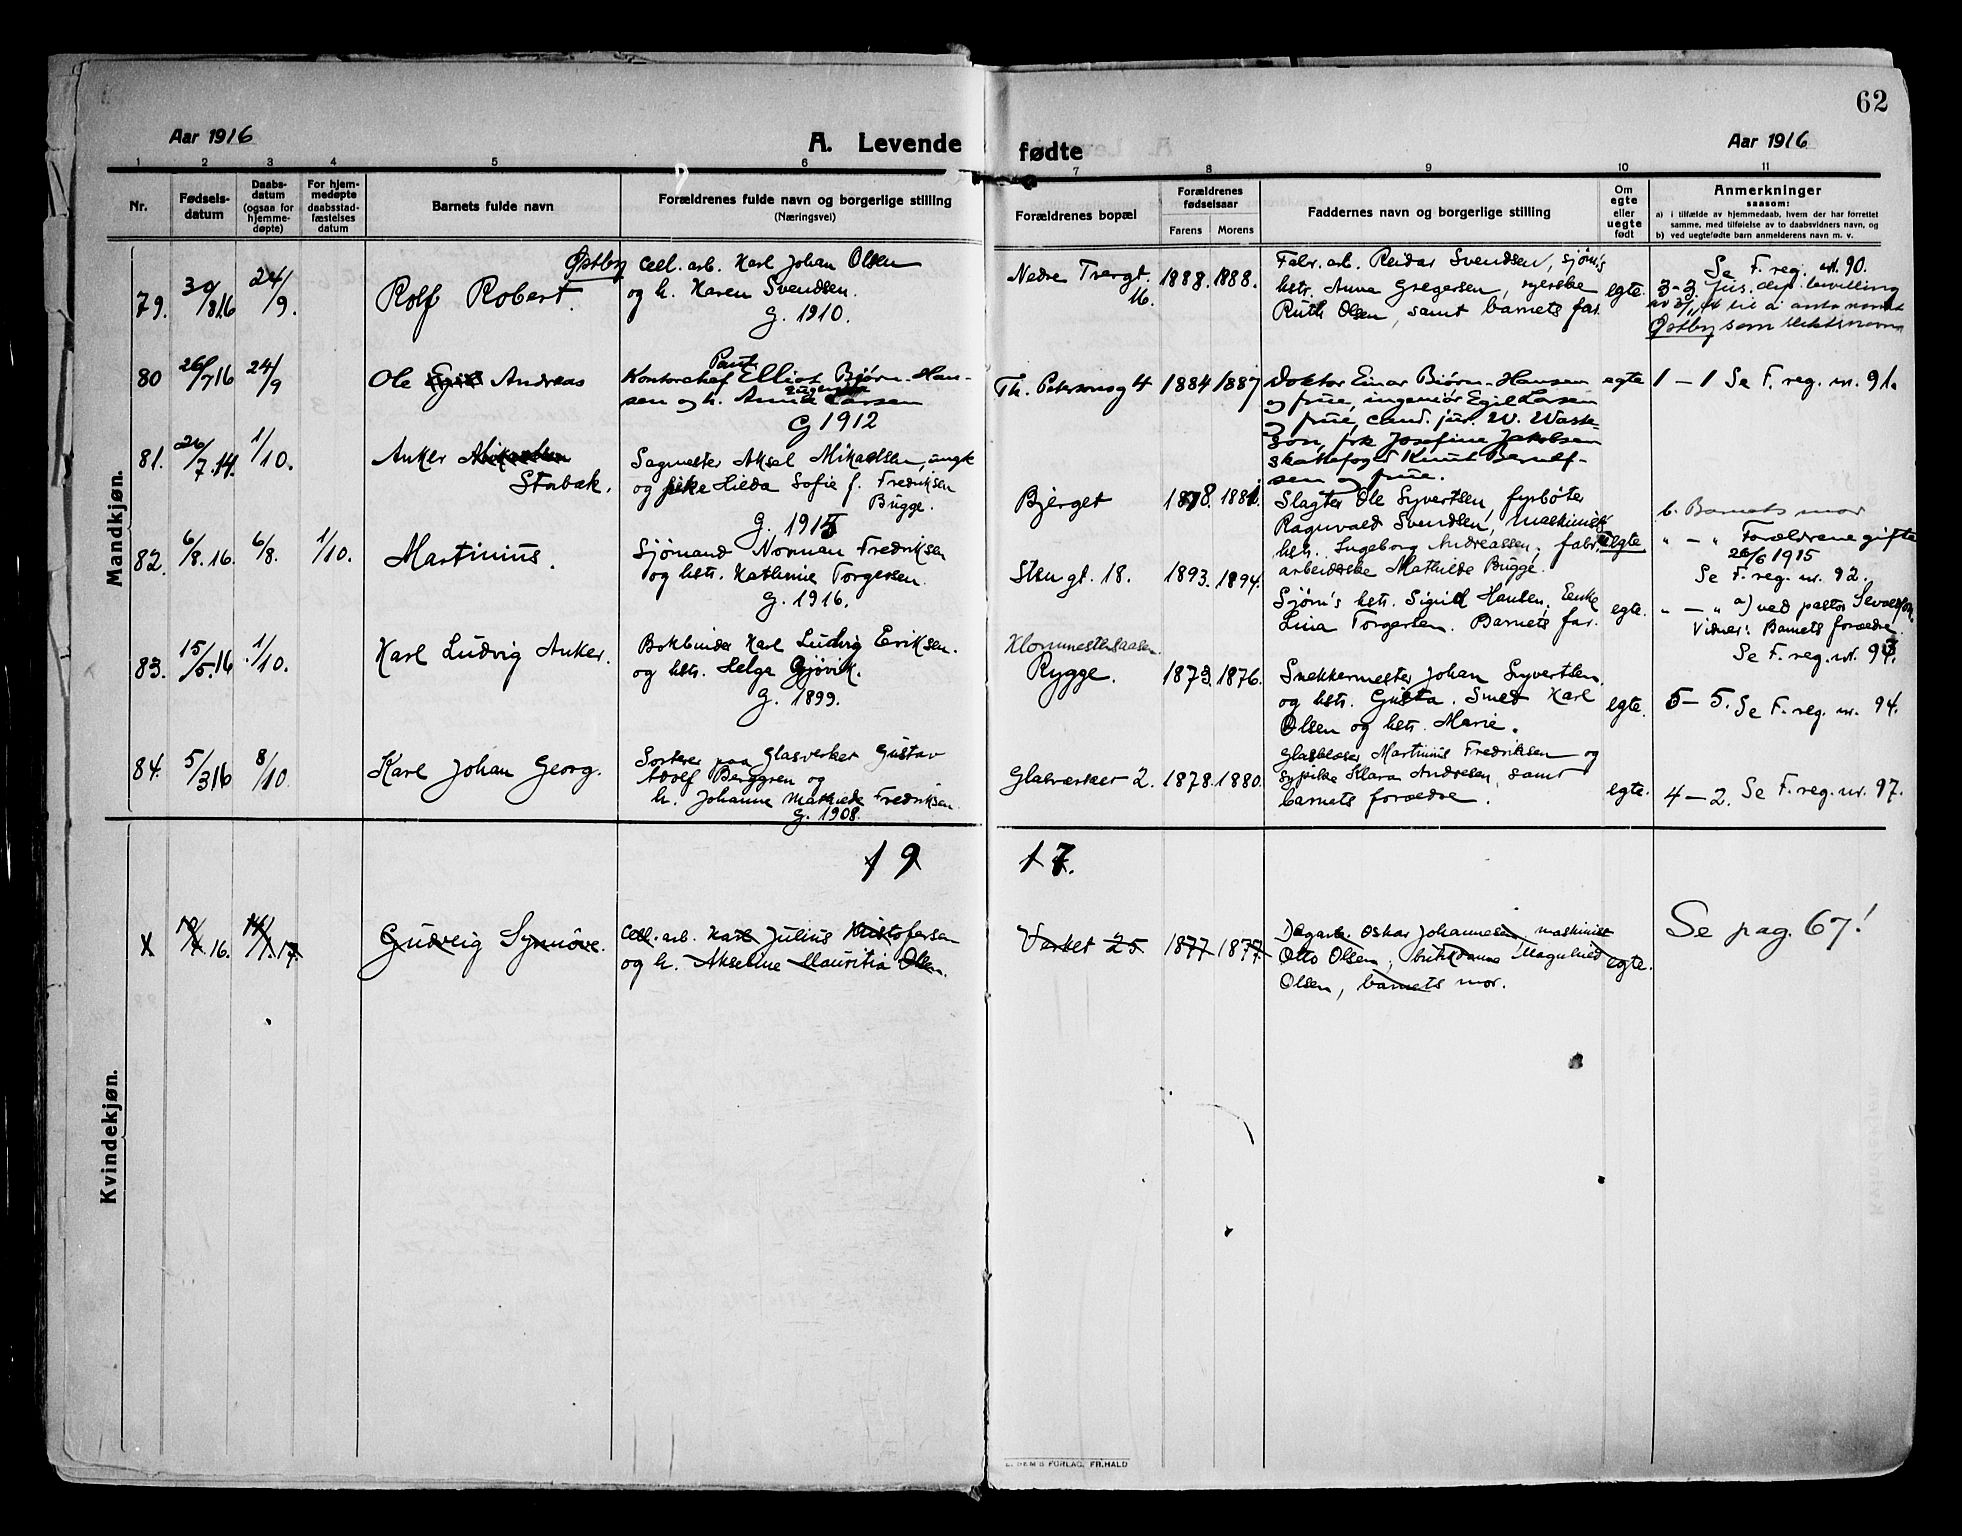 62
Aar 1916
A. Levende
fødte
Aar 1916
1 2 3 4 5 6 7 8 9 10 11
Nr.
Fødsels-
datum
Daabs-
datum
(ogsaa for
hjemme-
døpte)
For hjem-
medøpte
daabsstad-
fæstelses
datum
Barnets fulde navn
Forældrenes fulde navn og borgerlige stilling
(Næringsvei)
Forældrenes bopæl
Forældrenes
fødselsaar
Farens Morens
Faddernes navn og borgerlige stilling
Om
egte
eller
uegte
født
Anmerkninger
saasom:
a) i tilfælde av hjemmedaab, hvem der har forrettet
samme, med tilføielse av to daabsvidners navn, og
b) ved uegtefødte barn anmelderens navn m. v.
Mandkjøn.
79.
30/816
24/9.
Østby
Rolf Robert.
Cell. arb. Karl Johan Olsen
og h. Karen Svendsen.
G. 1910.
Nedre Tvergt
16.
1888. 1888.
Fabr. arb. Reidar Svendsen, sjøm's
hstr. Anna Gregersen, syerske
Ruth Olsen, samt barnets far.
egte.
Se F. reg. nr. 90.
3-3 Jus. dep. bevilling
til å anta navnet
Østby som slektsnavn
80
26/716
24/9
Ole Egil Andreas
Paul
Kontorchef Elliot Bjørn-Han-
sen og h. Larsen
G 1912
Th. Petersonsg 4
1884 1887
Doktor Einar Bjørn-Hansen
og frue, ingeniør Egil Larsen
og frue, cand. jur. W.
frk Josefine Jakobsen
skattefoged Knut
sen og frue.
egte
1-1 Se F. reg. nr. 91.
81.
26/7.14.
1/10.
Anker
Storbæk.
Sagmester Aksel Mikaelsen, ungk
og pike Hilda Sofie f. Fredriksen
Bugge.
G. 1915
Bjerget
1878. 1881.
Slagter Ole Syvertsen, fyrbøter
Ragnvald Svendsen, maskinist
hstr. Ingeborg Andreassen, fabr.
arbeiderske Mathilde Bugge.
uegte
b. Barnets mor
" - " Forældrene gifte
26/6 1915
Se F. reg. nr. 92.
82.
6/8. 16.
6/8.
1/10.
Martinius.
Sjømand Norman Fredriksen
og hstr. Kathrine Torgersen.
G. 1916.
Stengt. 18.
1893. 1894.
Sjøm's hstr. Sigrid Hansen. Enke
Lina Torgersen. Barnets far.
egte.
" - " a) ved pastor
Vidner: Barnets forældre.
Se F. reg. nr. 93.
83.
15/5.16
1/10.
Karl Ludvig Anker.
Bokbinder Karl Ludvig Eriksen.
og hstr. Helga Gjøvik.
G. 1899.
Rygge.
1873. 1876.
Snekkermester Johan Syvertsen.
og hstr. Gusta. Smed Karl
Olsen og hstr. Marie.
egte.
5-5. Se F. reg. nr. 94.
84.
5/316
8/10
Karl Johan Georg.
Sorterer paa Glasverket Gustav
Adolf Berggren og
h. Johanne Mathilde Fredriksen.
G. 1908.
Glasværket 2.
1878. 1880.
Glasblaaser Martinius Fredriksen og
sypike Klara Andresen, samt
barnets forældre.
egte.
4-2. Se F. reg. nr. 97.
Kvindekjøn.
19
17.
X
16.
17.
Gudveig Synnöve.
Cell. arb. Karl Julius Kristofersen
og h. Akseline Mauritia Olsen.
Varket 25
1877 1877
Dagarb. Oskar Johannesen, maskinist
Otto Olsen, Magnhild
Olsen, barnets mor.
egte.
Se pag. 67!
FORLAG, FR.HALD